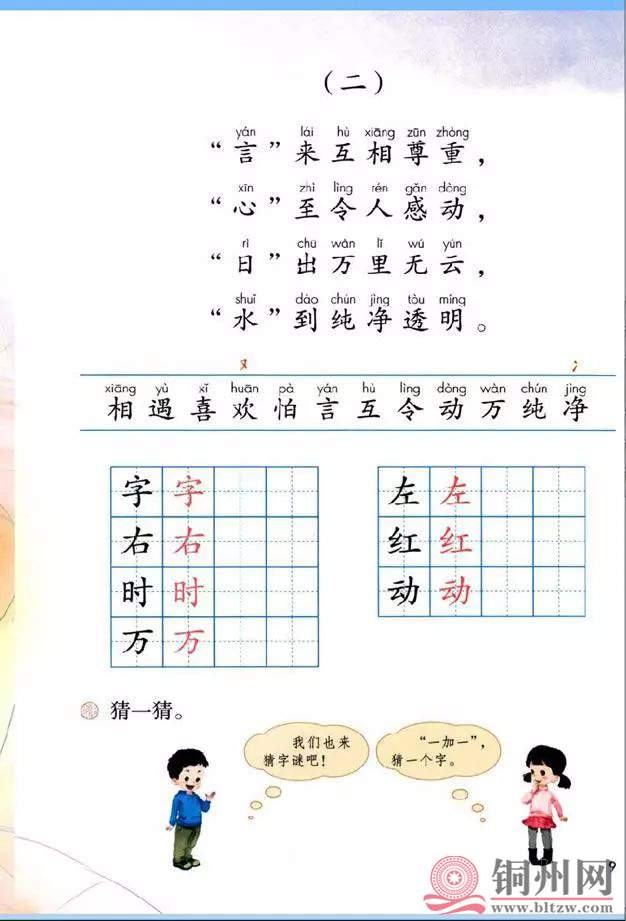 （二）
yán lái hù xiāng zūn zhòng
“言”来互相尊重，
xīn zhì lìng rén gǎn dòng
“心”至令人感动，
rì chū wàn lǐ wú yún
“日”出万里无云，
shuǐ dào chún jìng tòu míng
“水”到纯净透明。
又 冫
xiāng yù xǐ huān pà yán hù lìng dòng wàn chún jìng
相遇喜欢怕言互令动万纯净
字字 左左
右右 红红
时时 动动
万万
猜一猜。
我们也来
猜字谜吧！
“一加一”，
猜一个字。
9
铜州网
www.bltzw.com